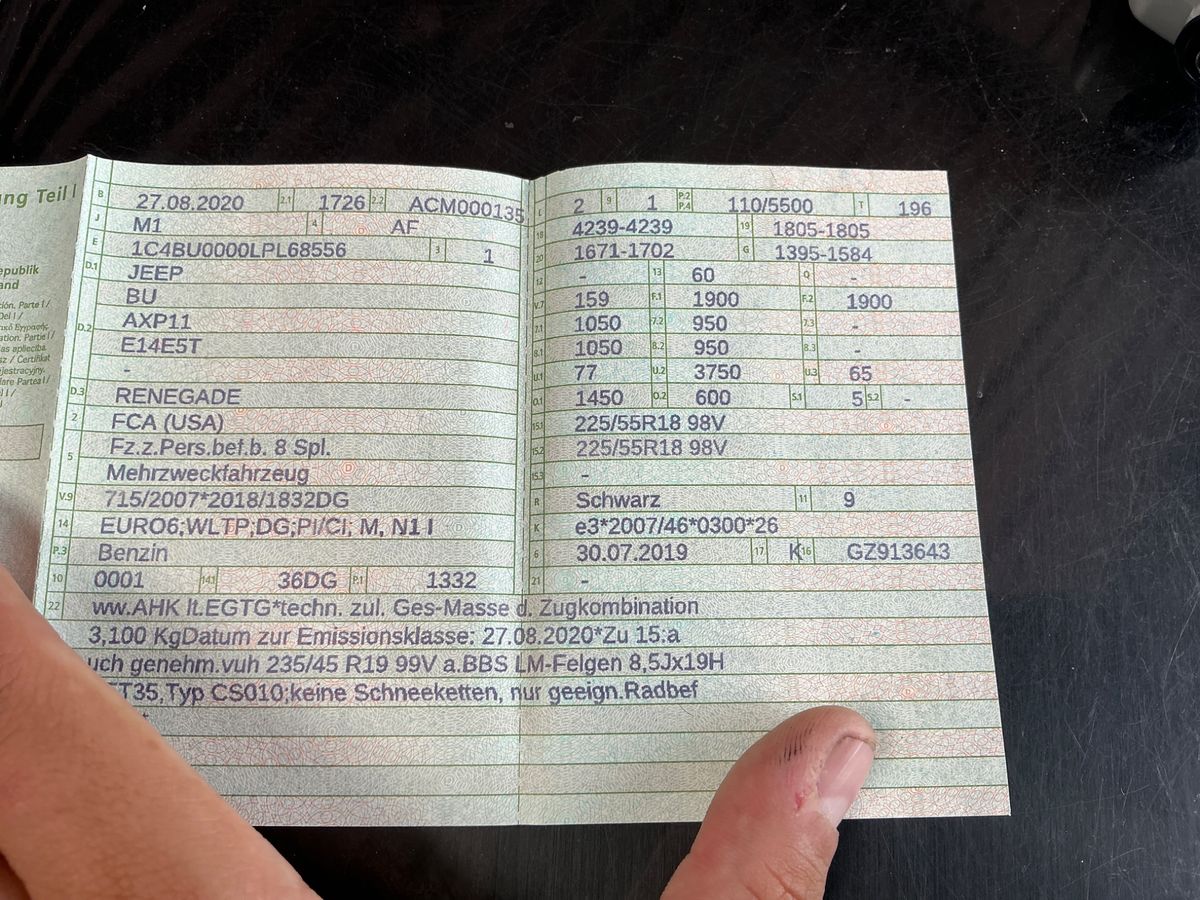 ng Teil I
epublik
and
ción. Parte I /
Del I /
Εγγραφής.
ation. Partie I /
as apliecība.
sz / Certifikat
ejestracyjny.
lare Partea I /
B 27.08.2020 2.1 1726 2.2 ACM000135
J M1 4 AF
E 1C4BU0000LPL68556 3 1
D.1 JEEP
BU
D.2 AXP11
E14E5T
-
D.3 RENEGADE
2 FCA (USA)
5 Fz.z.Pers.bef.b. 8 Spl.
Mehrzweckfahrzeug
V.9 715/2007*2018/1832DG
14 EURO6;WLTP;DG;PI/CI; M, N1 I
P.3 Benzin
10 0001 14.1 36DG P.1 1332
L 2 9 1 P.2 P.4 110/5500 T 196
18 4239-4239 19 1805-1805
20 1671-1702 G 1395-1584
12 - 13 60 Q -
V.7 159 F.1 1900 F.2 1900
7.1 1050 7.2 950 7.3 -
8.1 1050 8.2 950 8.3 -
U.1 77 U.2 3750 U.3 65
O.1 1450 O.2 600 S.1 5 S.2 -
15.1 225/55R18 98V
15.2 225/55R18 98V
15.3 -
R Schwarz 11 9
K e3*2007/46*0300*26
6 30.07.2019 17 K 16 GZ913643
21 -
22 ww.AHK lt.EGTG*techn. zul. Ges-Masse d. Zugkombination
3,100 KgDatum zur Emissionsklasse: 27.08.2020*Zu 15:a
uch genehm.vuh 235/45 R19 99V a.BBS LM-Felgen 8,5Jx19H
ET35,Typ CS010;keine Schneeketten, nur geeign.Radbef